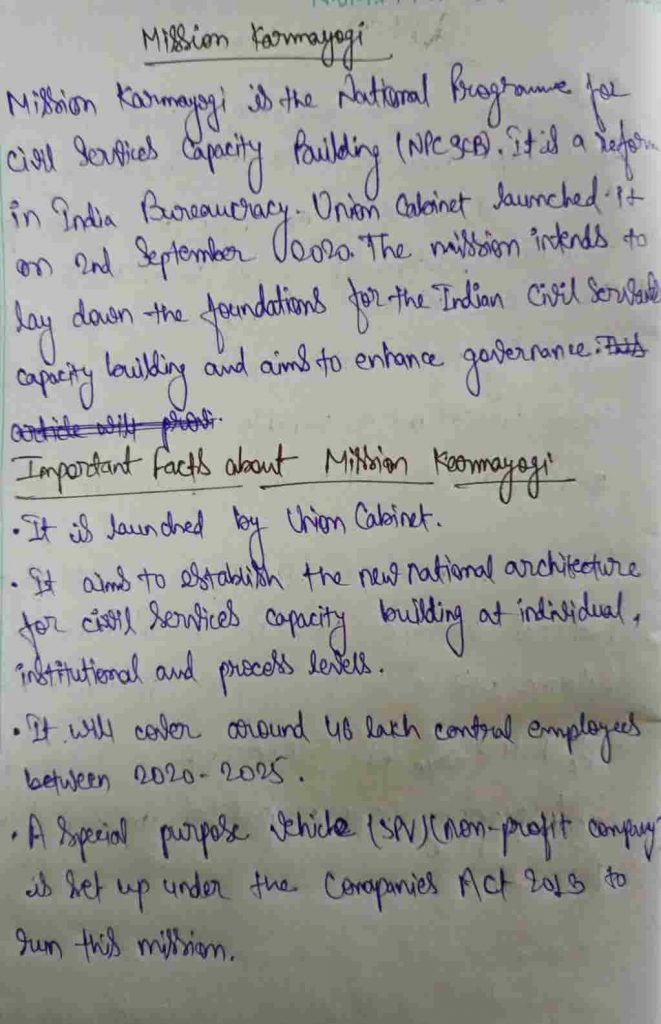 Mission Karmayogi
Mission Karmayogi is the National Programme for
Civil Services Capacity Building (NPCSCB). It is a reform
in India Bureaucracy. Union Cabinet launched it
on 2nd September 2020. The mission intends to
lay down the foundations for the Indian Civil Servants
capacity building and aims to enhance governance. This
article will provi.
Important facts about Mission Karmayogi
• It is launched by Union Cabinet.
• It aims to establish the new national architecture
for civil services capacity building at individual,
institutional and process levels.
• It will cover around 46 lakh central employees
between 2020-2025.
• A Special purpose Vehicle (SPV)(non-profit company)
is set up under the Companies Act 2013 to
run this mission.